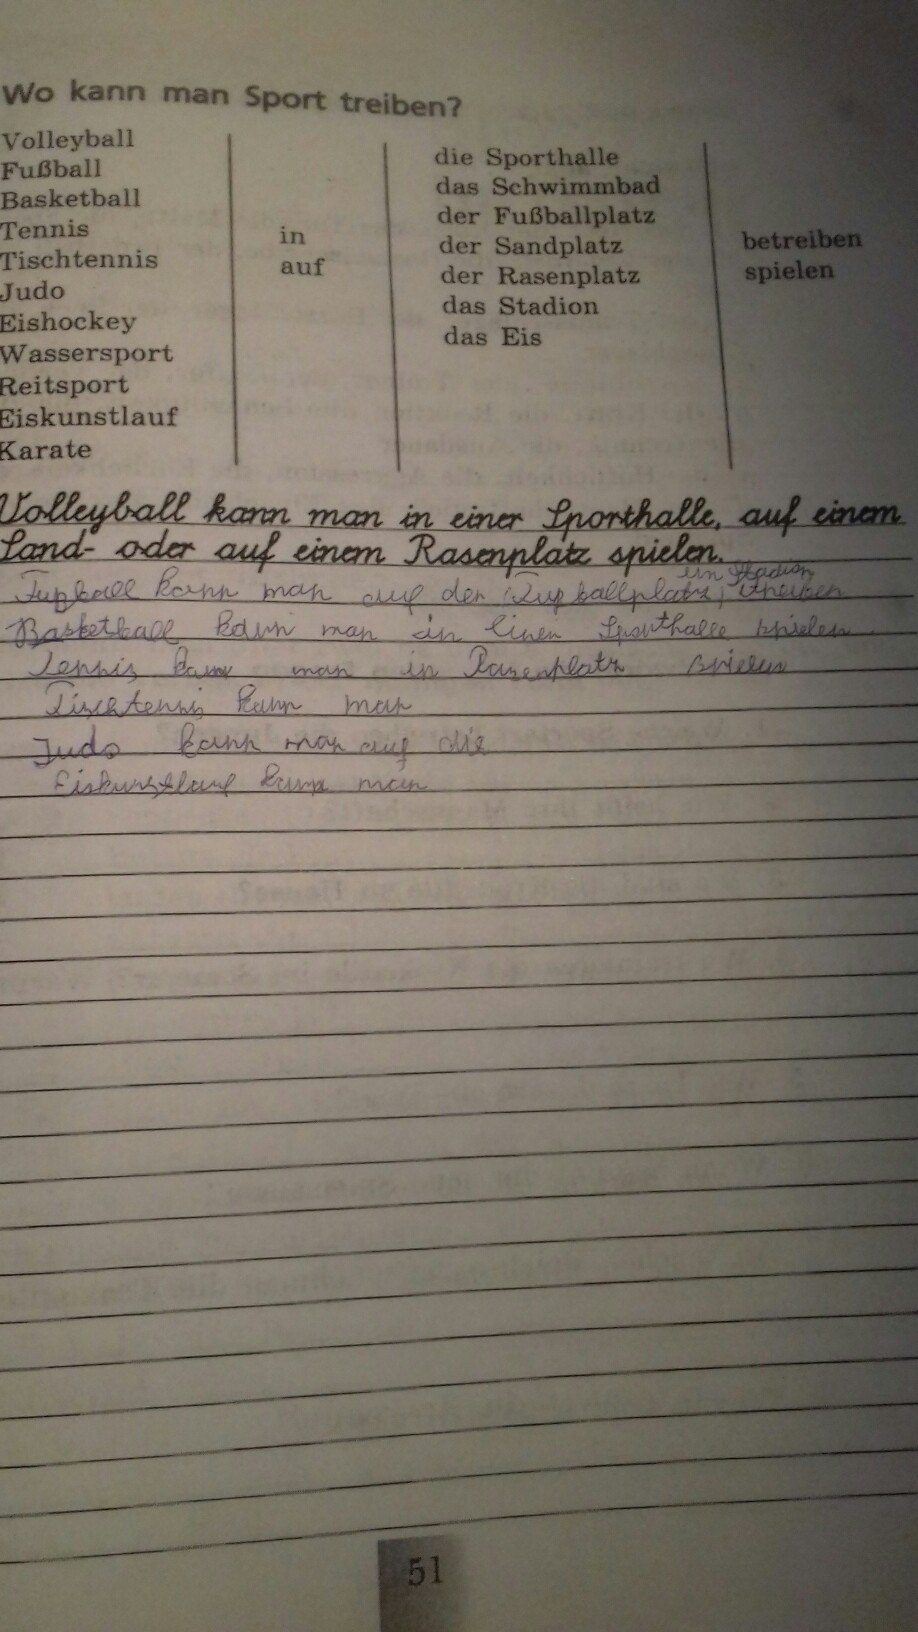 Wo kann man Sport treiben?
Volleyball
Fußball
Basketball
Tennis
Tischtennis
Judo
Eishockey
Wassersport
Reitsport
Eiskunstlauf
Karate
in
auf
die Sporthalle
das Schwimmbad
der Fußballplatz
der Sandplatz
der Rasenplatz
das Stadion
das Eis
betreiben
spielen
Volleyball kann man in einer Sporthalle, auf einem
Sand- oder auf einem Rasenplatz spielen.
Stadion
Fußball kann man auf der Fußballplatz,
Basketball kann man in einer Sporthalle spielen
Tennis kann man in Rasenplatz spielen
Tischtennis kann man
Judo kann man auf die
Eiskunstlauf kann man
51